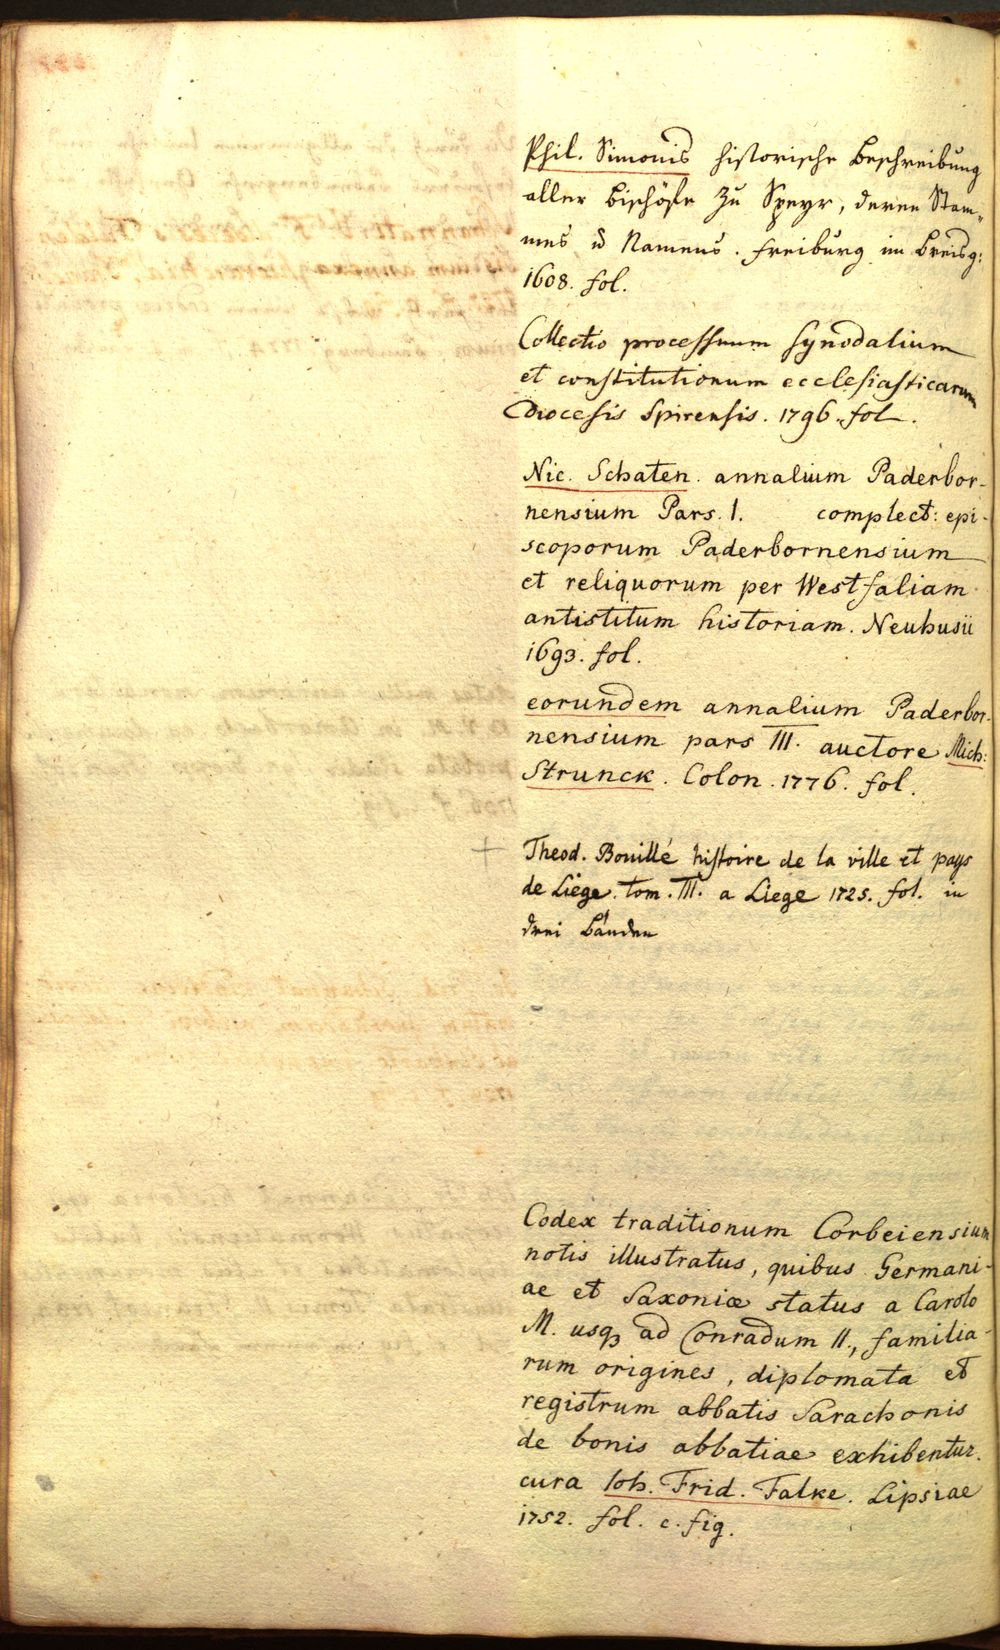 Phil. Simonis historische Beschreibung
aller Bischöfe zu Speyr, deren Stam„
mes u Namens. Freiburg im Breisg:
1608. fol.
Collectio processuum Synodalium
et constitutionum ecclesiasticarum
Diocesis Spirensis. 1796. fol.
Nic. Schaten. annalium Paderbor-
nensium Pars. I. complect: epi-
scoporum Paderbornensium
et reliquorum per Westfaliam
antistitum historiam. Neuhusii
1693. fol.
eorundem annalium Paderbor-
nensium pars III. auctore Mich:
Strunck. Colon. 1776. fol.
+ Theod. Bouillé histoire de la ville et pays
de Liége. tom. III. a Liege 1725. fol. in
drei Bänden
Codex traditionum Corbeiensium
notis illustratus, quibus Germani-
ae et Saxoniæ status a Carolo
M. usq3 ad Conradum II., familia-
rum origines, diplomata et
registrum abbatis Sarachonis
de bonis abbatiae exhibentur.
cura Ioh. Frid. Falke. Lipsiae
1752. fol. c. fig.